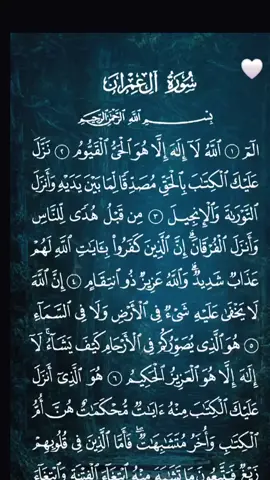 سُورَةُ آلِ عِمۡرَانَ
بِسۡمِ ٱللَّهِ ٱلرَّحۡمَٰنِ ٱلرَّحِيمِ
الٓمٓ ١ ٱللَّهُ لَآ إِلَٰهَ إِلَّا هُوَ ٱلۡحَيُّ ٱلۡقَيُّومُ ٢ نَزَّلَ
عَلَيۡكَ ٱلۡكِتَٰبَ بِٱلۡحَقِّ مُصَدِّقٗا لِّمَا بَيۡنَ يَدَيۡهِ وَأَنزَلَ
ٱلتَّوۡرَىٰةَ وَٱلۡإِنجِيلَ ٣ مِن قَبۡلُ هُدٗى لِّلنَّاسِ
وَأَنزَلَ ٱلۡفُرۡقَانَۗ إِنَّ ٱلَّذِينَ كَفَرُواْ بِـَٔايَٰتِ ٱللَّهِ لَهُمۡ
عَذَابٞ شَدِيدٞۗ وَٱللَّهُ عَزِيزٞ ذُو ٱنتِقَامٍ ٤ إِنَّ ٱللَّهَ
لَا يَخۡفَىٰ عَلَيۡهِ شَيۡءٞ فِي ٱلۡأَرۡضِ وَلَا فِي ٱلسَّمَآءِ
٥ هُوَ ٱلَّذِي يُصَوِّرُكُمۡ فِي ٱلۡأَرۡحَامِ كَيۡفَ يَشَآءُۚ لَآ
إِلَٰهَ إِلَّا هُوَ ٱلۡعَزِيزُ ٱلۡحَكِيمُ ٦ هُوَ ٱلَّذِيٓ أَنزَلَ
عَلَيۡكَ ٱلۡكِتَٰبَ مِنۡهُ ءَايَٰتٞ مُّحۡكَمَٰتٌ هُنَّ أُمُّ
ٱلۡكِتَٰبِ وَأُخَرُ مُتَشَٰبِهَٰتٞۖ فَأَمَّا ٱلَّذِينَ فِي قُلُوبِهِمۡ
زَيۡغٞ فَيَتَّبِعُونَ مَا تَشَٰبَهَ مِنۡهُ ٱبۡتِغَآءَ ٱلۡفِتۡنَةِ وَٱبۡتِغَآءَ